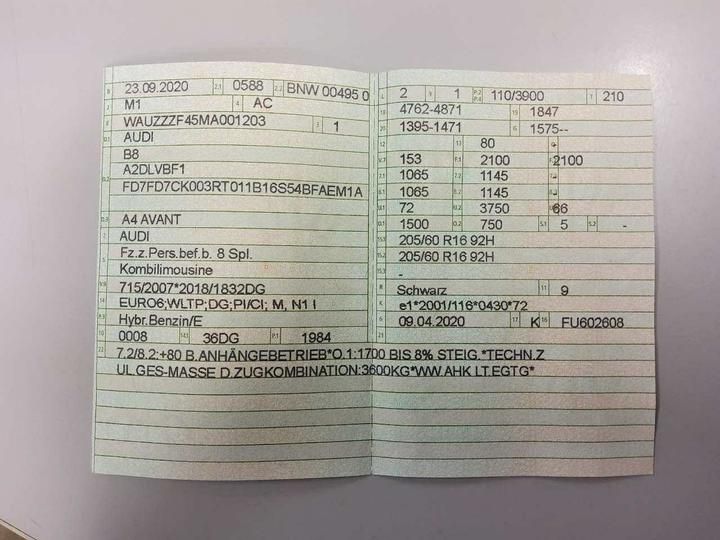 B 23.09.2020 2.1 0588 2.2 BNW 00495 0
J M1 4 AC
E WAUZZZF45MA001203 3 1
D.1 AUDI
B8
D.2 A2DLVBF1
FD7FD7CK003RT011B16S54BFAEM1A
D.3 A4 AVANT
2 AUDI
5 Fz.z.Pers.bef.b. 8 Spl.
Kombilimousine
V.9 715/2007*2018/1832DG
14 EURO6;WLTP;DG;PI/CI; M, N1 I
P.3 Hybr.Benzin/E
10 0008 14.1 36DG P.1 1984
L 2 9 1 P.2 P.4 110/3900 T 210
18 4762-4871 19 1847
20 1395-1471 G 1575--
12 13 80 Q -
V.7 153 F.1 2100 F.2 2100
7.1 1065 7.2 1145 7.3 -
8.1 1065 8.2 1145 8.3 -
U.1 72 U.2 3750 U.3 66
O.1 1500 O.2 750 S.1 5 S.2 -
15.1 205/60 R16 92H
15.2 205/60 R16 92H
15.3 -
R Schwarz 11 9
K e1*2001/116*0430*72
6 09.04.2020 17 K 16 FU602608
21
22 7.2/8.2:+80 B.ANHÄNGEBETRIEB*O.1:1700 BIS 8% STEIG.*TECHN.Z
UL.GES-MASSE D.ZUGKOMBINATION:3600KG*WW.AHK LT.EGTG*